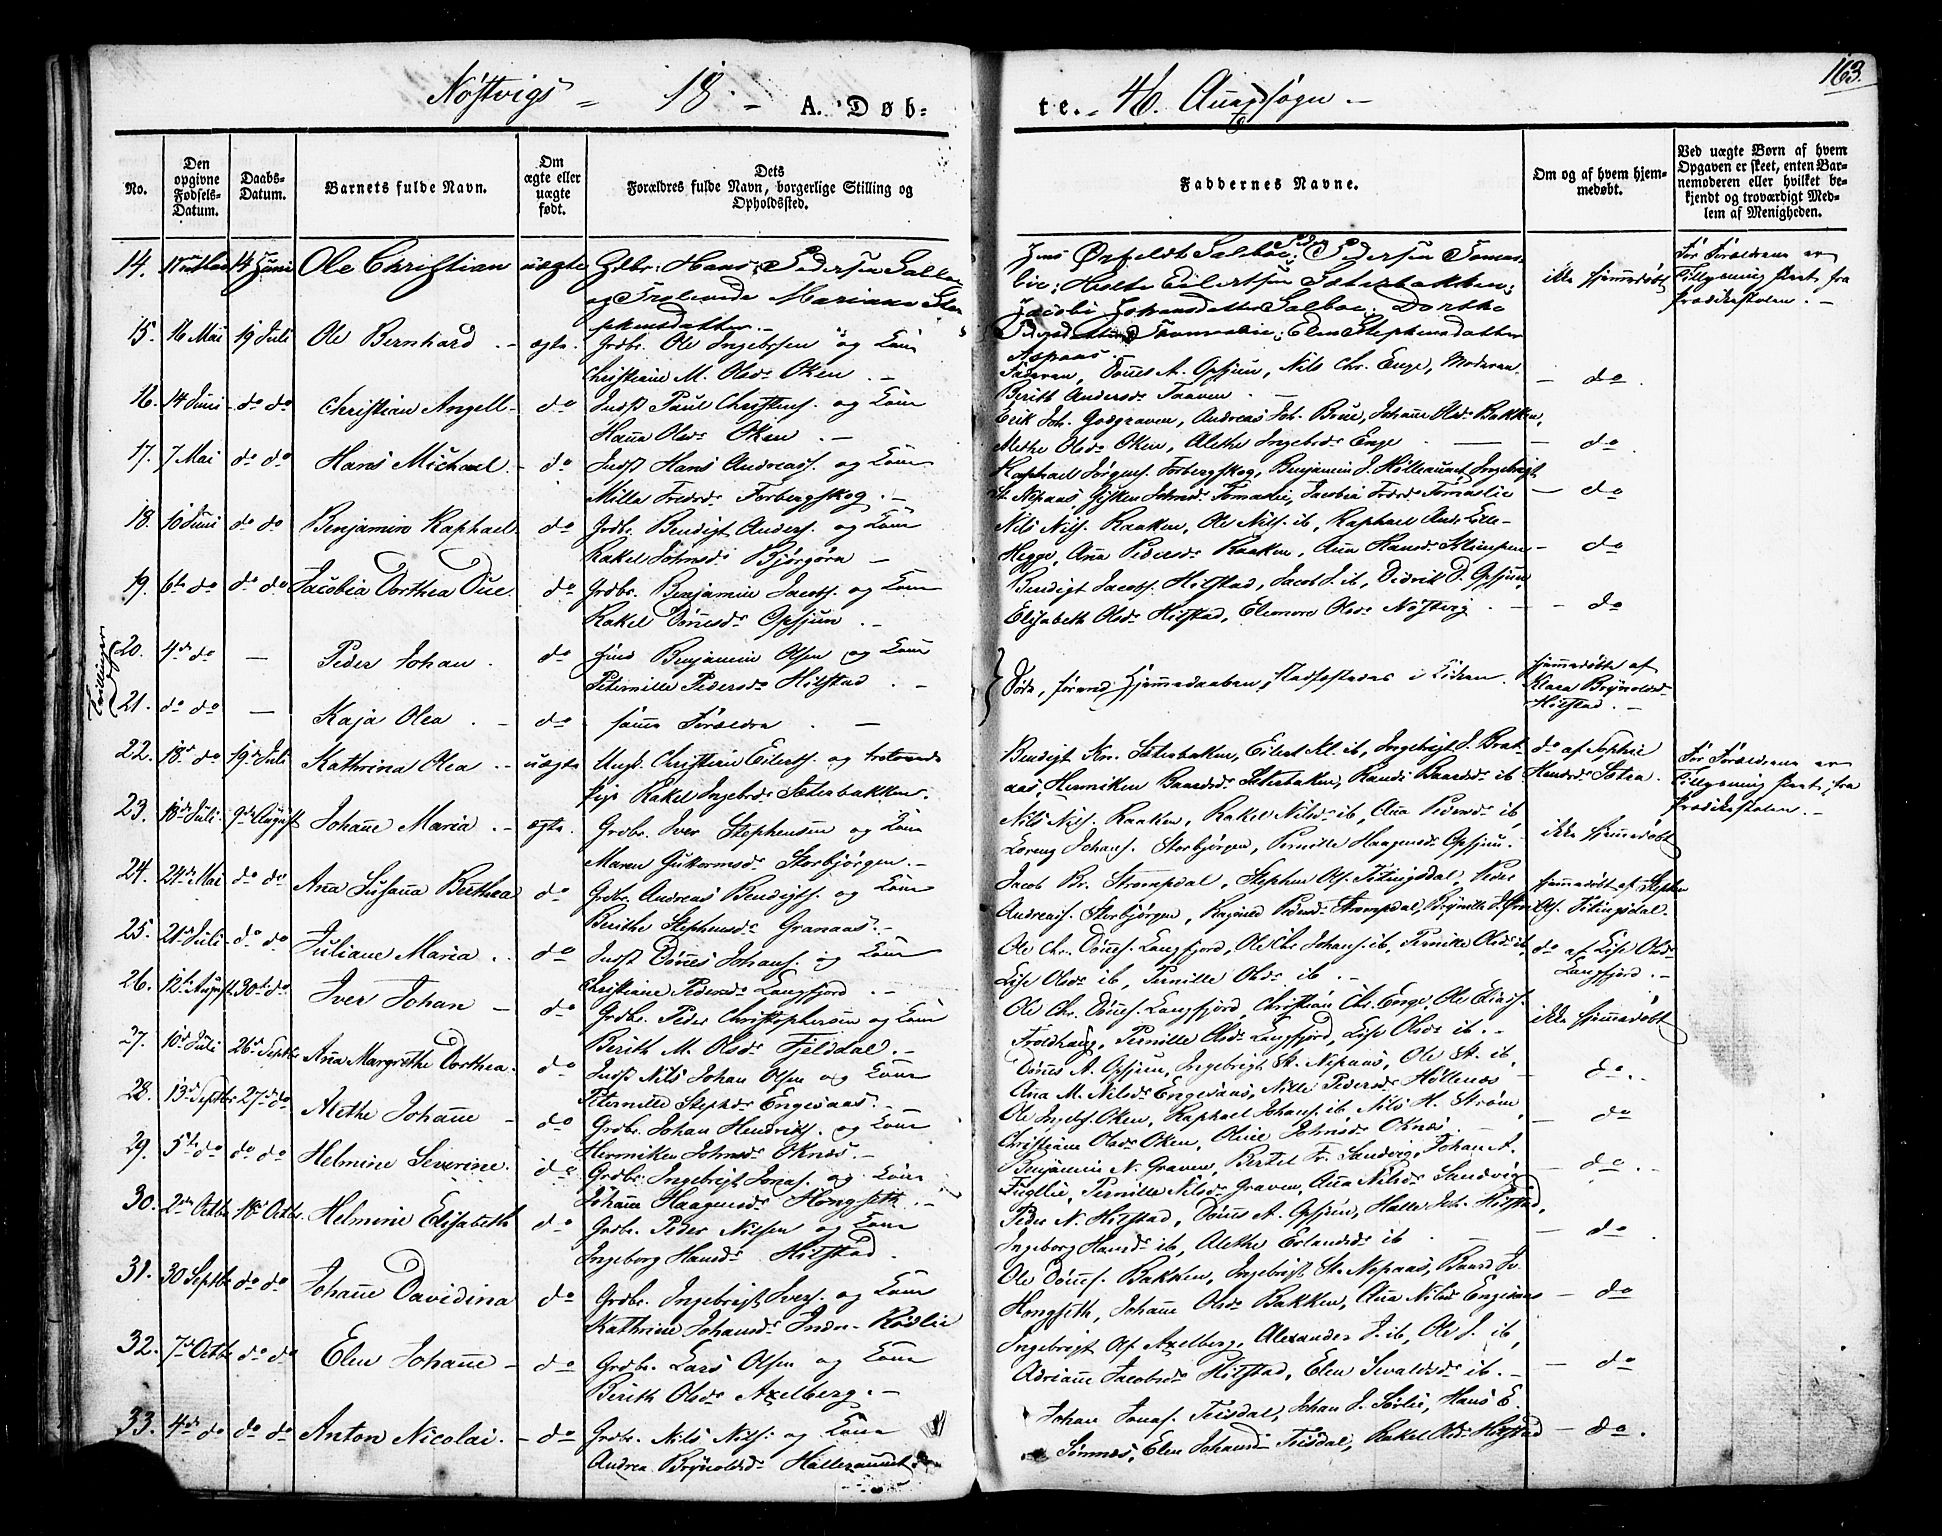 163.
Nøstvigs = 18 - A. Døb-
te. - 46. Annexsogn -
No.
Den opgivne Fødsels-Datum.
Daabs-Datum.
Barnets fulde Navn.
Om ægte eller uægte født.
Dets Forældres fulde Navn, borgerlige Stilling og Opholdssted.
Faddernes Navne.
Om og af hvem hjemmedøbt.
Ved uægte Børn af hvem Opgaven er skeet, enten Barnemoderen eller hvilket bekjendt og troværdigt Medlem af Menigheden.
14. 14 Juni Ole Christian uægte
Gdbr. Hans Pedersen
og Trolovede Mariane Ste-
phensdatter -
ikke hjemmedøbt
For Forældrene er
Tillysning skeet fra
Prædikestolen. -
15. 16 Mai 19 Juli Ole Bernhard - ægte.
Grdbr. Ole Ingebrsen og Kone
Christiane M. Olsdr Oken -
Faderen, Dønes A. Opsjøn, Nils Chr. Enge, Moderen,
Berith Andersdr
- do.
16. 14 Juni do do Christian Angell - do
Indst Paul Christens. og Kone
Hanna Olsdr Oken -
Erik Joh. Godgraven, Andreas Joh. Johanne Olsdr Bakken,
Methe Olsdr Oken, Alethe Ingebrdr Enge -
- do
17. 7 Mai do do Hans Michael - do
Indst Hans Andreass. og Kone
Milla Fredrdr Forbergskog. -
Raphael Jørgens. Forbergskog, Benjamin J.
St. Nepaas,
- do
18. 10 Juni do do Benjamin Raphael do
Grdbr. Bendigt Anders. og Kone
Rakel Johnsdr Bjørgøra -
Nils Nils. Raaken, Ole Nils. ib, Raphael And.
Hegge, Ana Pedersdr Raaken, Ana Hansdr
- do
19. 6te do do do Jacobia Dorthea Due. do
Grdbr. Benjamin Jacobs. og Kone
Rakel Dønesdr Opsjøn. -
Bendigt Jacobs. Hilstad, Jacob J. ib, Didrik D. Opsjøn,
Elisabeth Olsdr Hilstad, Eleonore Olsdr Nøstvig -
- do
Tvillinger
20. 4de do - Peder Johan. do
Benjamin Olsen og Kone
Peternille Pedersdr Hilstad. -
Døde, førend Hjemmedaaben stadfæstedes i Kirken.
hjemmedøbte af
Klara Brynolsdr
Hilstad. -
21. do do - Kaja Olea. - do
samme Forældre. -
22. 18de do 19de Juli Kathrina Olea. - uægte
Ungk. Christian Eilerts. og trolovede
Pige Rakel Ingebrdr Sæterbakken.
Bendigt Kr. Sæterbakken, Eilert Kl. ib, Ingebrigt J. Brat-
aas, Henniken Baardsdr Sæterbakken, Randi Baardsdr ib
do af Sophie
For Forældrene er
Tillysning skeet fra
Prædikestolen. -
23. 18de Juli. 9de August Johanne Maria. - ægte.
Grdbr. Iver Stephensen og Kone
Maren Guttormsdr Storbjørgen. -
Nils Nils. Raaken, Rakel Nilsdr ib, Ana Pedersdr ib,
Lorenz Johans. Storbjørgen, Pernille Haagensdr Opsjøn. -
ikke hjemmedøbt
24. 24de Mai do do Ana Susana Berthea do
Grdbr. Andreas Bendigts. og Kone
Berithe Stephensdr Granaas. -
Jacob Br. Strompdal, Stephen Ols. Fitingsdal, Peder
Andreas. Storbjørgen, Ragnild Pedersdr Strompdal,
hjemmedøbt af Stephen
Ols. Fitingsdal.
25. 21de Juli. do do Juliane Maria. - do
Indst Dønes Johans. og Kone
Christiane Pedersdr Langfjord -
Ole Chr. Dønes. Langfjord, Ole Chr. Johans. ib,
Lise Olsdr ib, Pernille Olsdr ib. -
do af Lise Olsdr
Langfjord. -
26. 12te August 30te do. Iver Johan - do
Grdbr. Peder Christophersen og Kone
Berith M. Olsdr Fjeldal. -
Ole Chr. Dønes. Langfjord, Christian Chr. Enge, Ole Elias.
Troldhaug, Pernille Olsdr Langfjord, Lise Olsdr ib. -
ikke hjemmedøbt
27. 10de Juli 26de Septbr. Ana Margrethe Dorthea. do
Indst Nils Johan Olsen og Kone
Peternille Stephdr Engesaas. -
Dønes A. Opsjøn, Ingebrigt St. Nepaas, Ole St. ib,
Ana M. Nilsdr Engesaas, Nille Pedersdr
- do. -
28. 13de Septbr 27de do Alethe Johanne - do
Grdbr. Johan Hendriks. og Kone
Henniken Johnsdr Oknæs. -
Ole Ingebr. Oken, Raphael Johans. ib, Nils H. Strøm,
Christiane Olsdr Oken, Oline Johnsdr Oknæs. -
- do
29. 5te do do do Helmine Severine. do
Grdbr. Ingebrigt Jonas. og Kone
Johanne Haagensdr Hongseth -
Benjamin N. Graven, Bertel Fr. Sandvig, Johan A.
Fugllie, Pernille Nilsdr Graven, Ana Nilsdr Sandvig.
- do. -
30. 2den Octbr. 18de Octbr. Helmine Elisabeth do
Grdbr. Peder Nilsen og Kone
Ingeborg Hansdr Hilstad.
Peder N. Hilstad, Dønes A. Opsjøn, Halle Joh. Hilstad,
Ingeborg Hansdr ib, Alethe Erlandsdr ib -
- do.
31. 30 Septbr do do Johanne Davidina do
Grdbr. Ingebrigt Ivers. og Kone
Kathrine Johansdr Indre-Rødlie
Ole Dønes. Bakken, Ingebrigt St. Nepaas, Baard Iv.
Hongseth, Johanne Olsdr Bakken, Ana Nilsdr Engesaas
- do
32. 7de Octbr do do Elen Johanne - do
Grdbr. Lars Olsen og Kone
Berith Olsdr Axelberg. -
Ingebrigt Ols. Axelberg, Alexander J. ib, Ole J. ib,
Adriane Jacobsdr Hilstad, Elen Sevaldsdr ib. -
- do
33. 4de do do do Anton Nicolai. - do
Grdbr. Nils Nils. og Kone
Andrea Brynolsdr
Johan Jonas. Teisdal, Johan J. Sørlie, Hans E.
Sømnes, Elen Johansdr Teisdal, Rakel Olsdr Hilstad
- do.